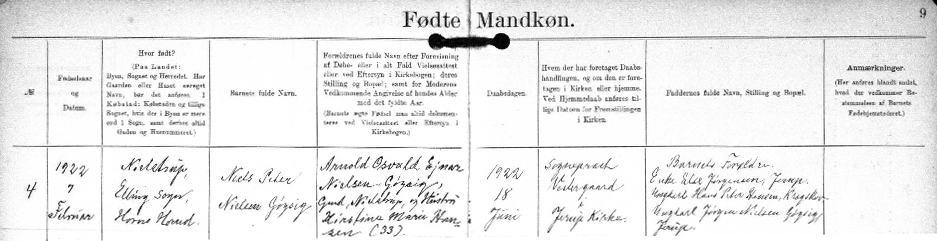 Fødte Mandkøn.
9
№
Fødselsaar
og
Datum.
Hvor født?
(Paa Landet:
Byen, Sognet og Herredet. Har
Gaarden eller Huset særeget
Navn, bør det anføres. I
Købstad: Købstaden og tillige
Sognet, hvis der i Byen er mere
end 1 Sogn, samt derhos altid
Gaden og Husnummeret.)
Barnets fulde Navn.
Forældrenes fulde Navn efter Forevisning
af Døbe- eller i alt Fald Vielsesattest
eller ved Eftersyn i Kirkebogen; deres
Stilling og Bopæl; samt for Moderens
Vedkommende Angivelse af hendes Alder
med det fyldte Aar.
(Barnets ægte Fødsel maa altid dokumen-
teres ved Vielsesattest eller Eftersyn i
Kirkebogen.)
Daabsdagen.
Hvem der har foretaget Daabs-
handlingen, og om den er fore-
tagen i Kirken eller hjemme.
Ved Hjemmedaab anføres til-
lige Datoen for Fremstillingen
i Kirken.
Faddernes fulde Navn, Stilling og Bopæl.
Anmærkninger.
(Her anføres blandt andet,
hvad der vedkommer Be-
stemmelsen af Barnets
Fødehjemstedsret.)
4
1922
7
Februar
Elling Sogn,
Horns Herred
Niels Peter
Nielsen Gøgsig
Arnold Osvald Ejnar
Nielsen Gøgsig,
og Hustru
Kirstine Marie Han-
sen (33)
1922
18
Juni
Sognepræst
Vestergaard
i
Jerup Kirke.
Barnets Forældre.
Enke Else Jørgensen, Jerup.
Ungkarl Hans Peter Hansen, Kragskov
Ungkarl Jørgen Nielsen Gøgsig,
Jerup.